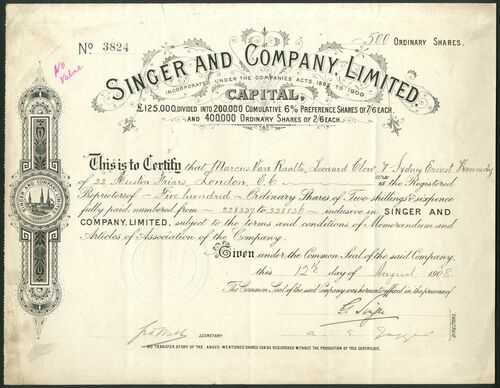 No 3824
500 ORDINARY SHARES.
No Value
SINGER AND COMPANY, LIMITED.
INCORPORATED UNDER THE COMPANIES' ACTS 1862 TO 1900.
CAPITAL,
£125,000, DIVIDED INTO 200,000 CUMULATIVE 6% PREFERENCE SHARES OF 7/6 EACH.
AND 400,000 ORDINARY SHARES OF 2/6 EACH.
This is to Certify that Marcus Van Raalte, Leonard Clow, & Sydney Ernest Kennedy
of 22 Austin Friars, London, E.C. are the Registered
Proprietors of Five Hundred Ordinary Shares of Two shillings & sixpence
fully paid, numbered from 228337 to 228836 inclusive in SINGER AND
COMPANY, LIMITED, subject to the terms and conditions of Memorandum and
Articles of Association of the Company.
Given under the Common Seal of the said Company,
this 12th day of August 1908.
The Common Seal of the said Company was hereunto affixed in the presence of
SECRETARY
DIRECTORS
NO TRANSFER OF ANY OF THE ABOVE-MENTIONED SHARES CAN BE REGISTERED WITHOUT THE PRODUCTION OF THIS CERTIFICATE.
SINGER AND COMPANY LIMITED